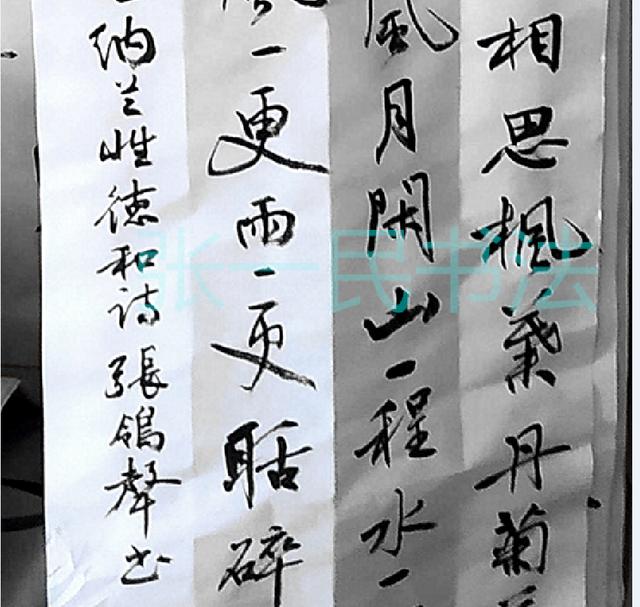 相思楓葉丹菊
風月閑山一程水一
風一更雨一更聒碎
纳兰性德和诗張鴿聲书
张一民书法